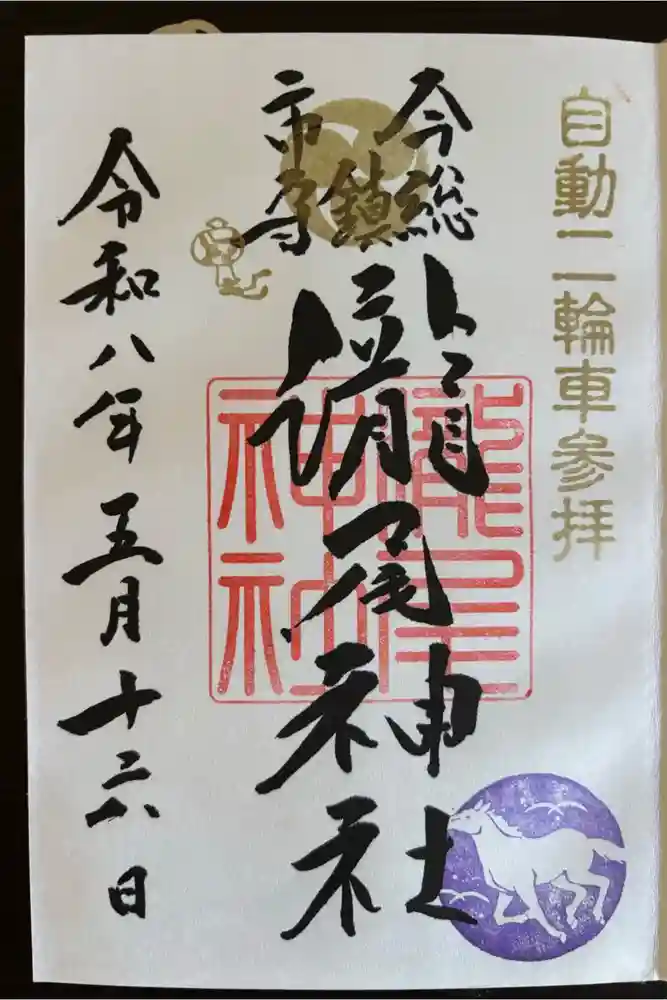 自動二輪車参拝
今市
総鎮守
瀧尾神社
瀧尾
神社
令和八年五月十六日